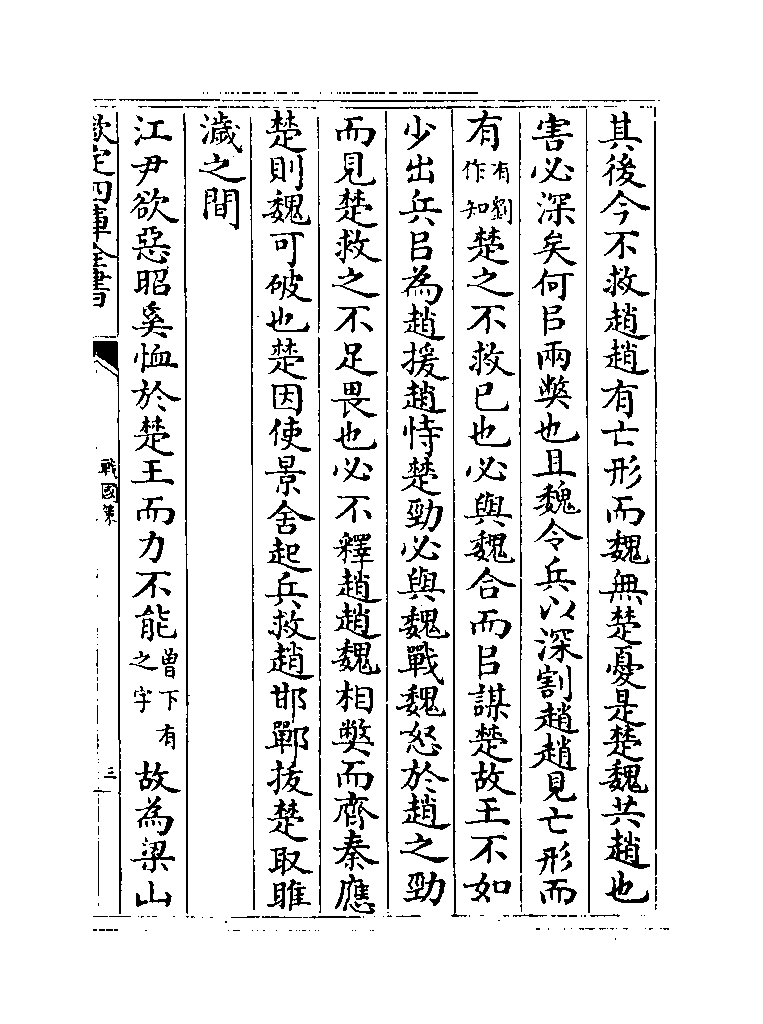 其後今不救趙趙有亡形而魏無楚憂是楚魏共趙也
害必深矣何㠯兩獘也且魏令兵以深割趙趙見亡形而
有有劉作知楚之不救已也必與魏合而㠯謀楚故王不如
少出兵㠯為趙援趙恃楚勁必與魏戰魏怒於趙之勁
而見楚救之不足畏也必不釋趙趙魏相獘而齊秦應
楚則魏可破也楚因使景舍起兵救趙邯鄲拔楚取睢
濊之間
江尹欲惡昭奚恤於楚王而力不能曾下有之字故為梁山
欽定四庫全書
戰國策
三